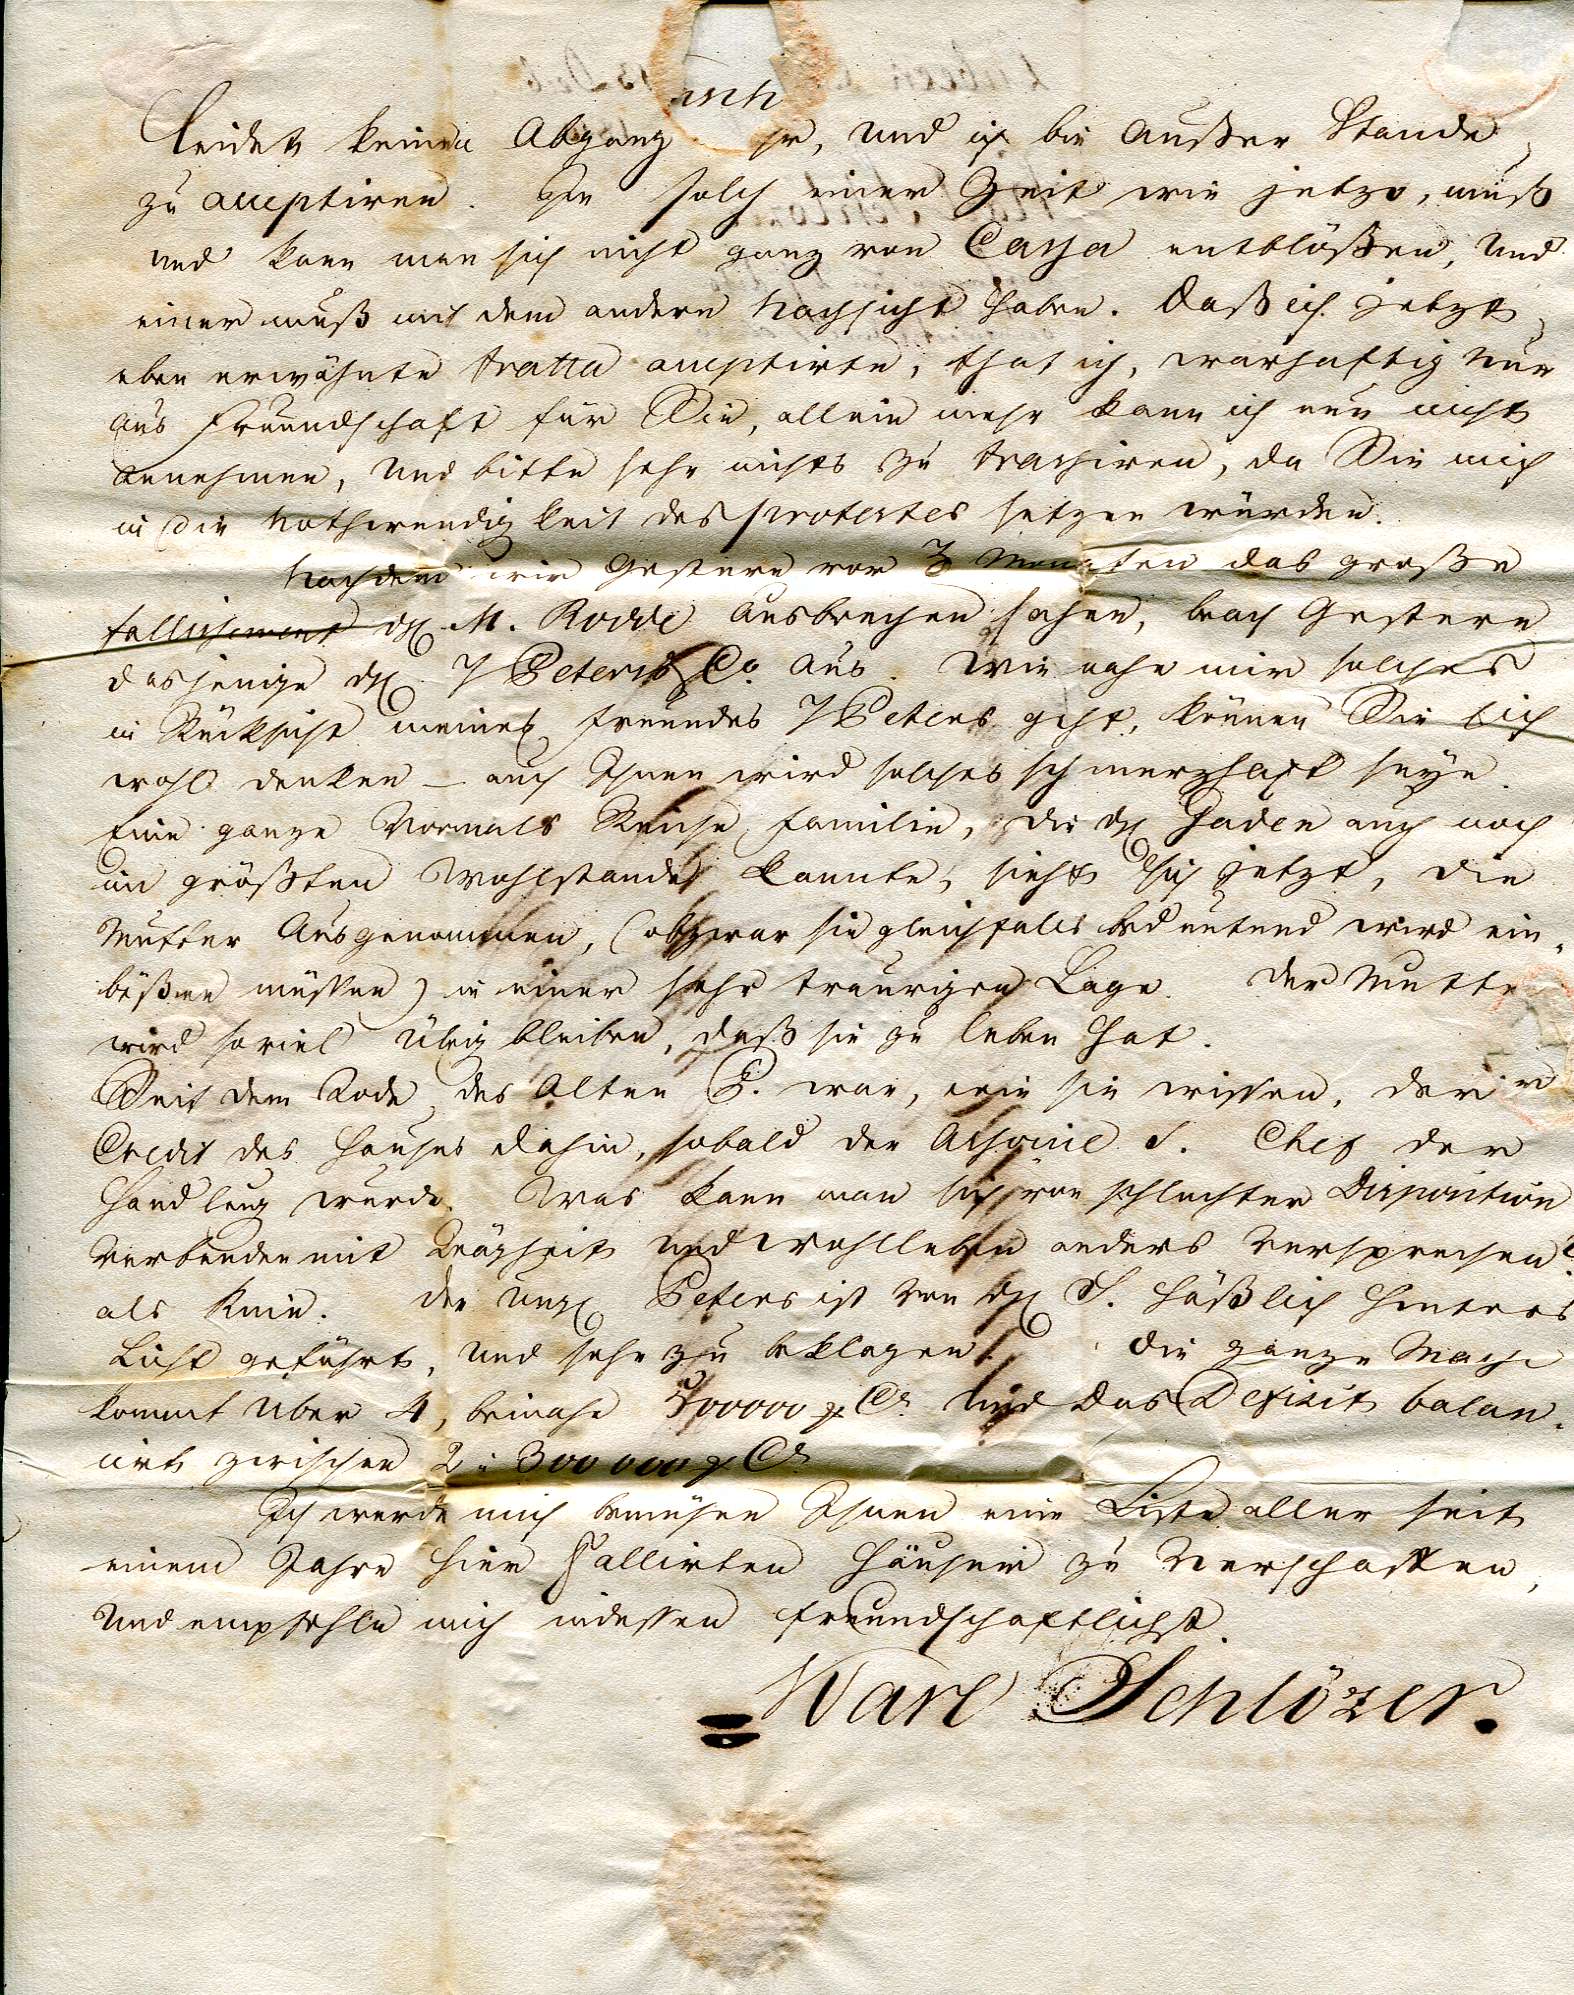 leidet keinen Abgang mehr, und ich bin außer Stande
zu acceptiren. In solch einer Zeit wie jetzo, muß
und kann man sich nicht ganz von Cassa entblößen, und
einer muß mit dem andern Nachsicht haben. Daß ich jetzt
eben erwähnte tratta acceptirte, that ich, warhaftig nur
aus Freundschaft für Sie, allein mehr kann ich nun nicht
annehmen, und bitte sehr nichts zu trassiren, da Sie mich
in die Nothwendigkeit des protestes setzen würden.
Nachdem wir Gestern vor 3 Monaten das große
fallissement M. Rodde ausbrechen sahen, brach Gestern
dasjenige Peters & Co. aus. Wie nahe mir solches
in Rücksicht meines Freundes Peters geht, können Sie sich
wohl denken – auch Ihnen wird solches schmerzhaft seyn.
Eine ganze Vormals Reiche Familie, die Gaden auch noch
im größten Wohlstande kannte, sieht sich jetzt, die
Mutter Ausgenommen, (obzwar sie gleichfalls bedeutend wird ein-
büßen müssen) in einer sehr traurigen Lage. Der Mutter
wird soviel übrig bleiben, daß sie zu leben hat.
Seit dem Tode des Alten P. war, wie sie wissen, der
Credit des Hauses dahin, sobald der Associé S. Chef der
Handlung wurde. Was kann man sich von schlechter Disposition
verbunden mit Trägheit und Wohlleben anders versprechen?
als Ruin. Der Peters ist von S. häßlich hinters
Licht geführt, und sehr zu beklagen. Die ganze Masse
kommt über 4, beinahe 500000 und das Defizit balan-
cirt zwischen 2 300000
Ich werde mich bemühen Ihnen eine Liste aller seit
einem Jahre hier Fallirten Häuser zu verschaffen,
und empfehle mich indessen freundschaftlichst.
Karl Schlözer.